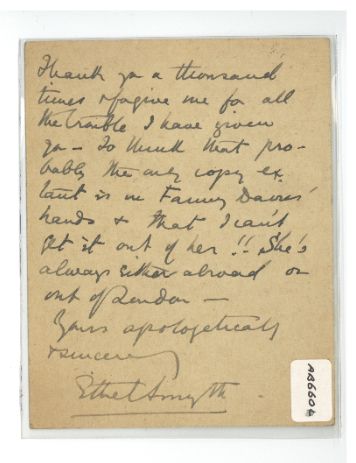 Thank you a thousand
times & forgive me for all
the trouble I have given
you – To think that pro-
bably the only copy ex-
tant is in Fanny Davies'
hands & that I can't
get it out of her!! She's
always either abroad or
out of London –
Yours apologetically
& sincerely
Ethel Smyth.
AB6604